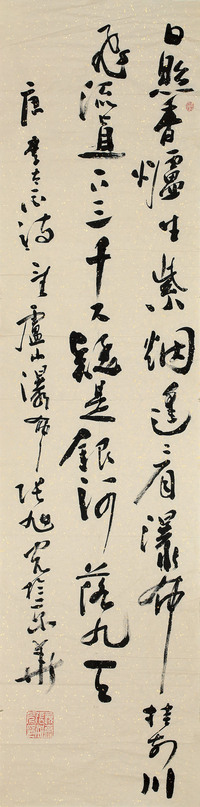 日照香爐生紫烟遥看瀑布挂前川
飛流直下三千尺疑是銀河落九天
唐李太白詩望廬山瀑布張旭光於京華